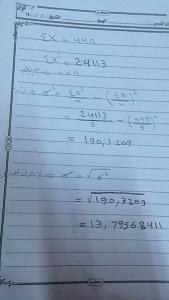 Σx = 449
Σx² = 24113
σ² = Σx²/n − (Σx/n)²
= 24113/9 − (449/9)²
= 190,3209
σ = √σ²
= √190,3209
= 13,79568411